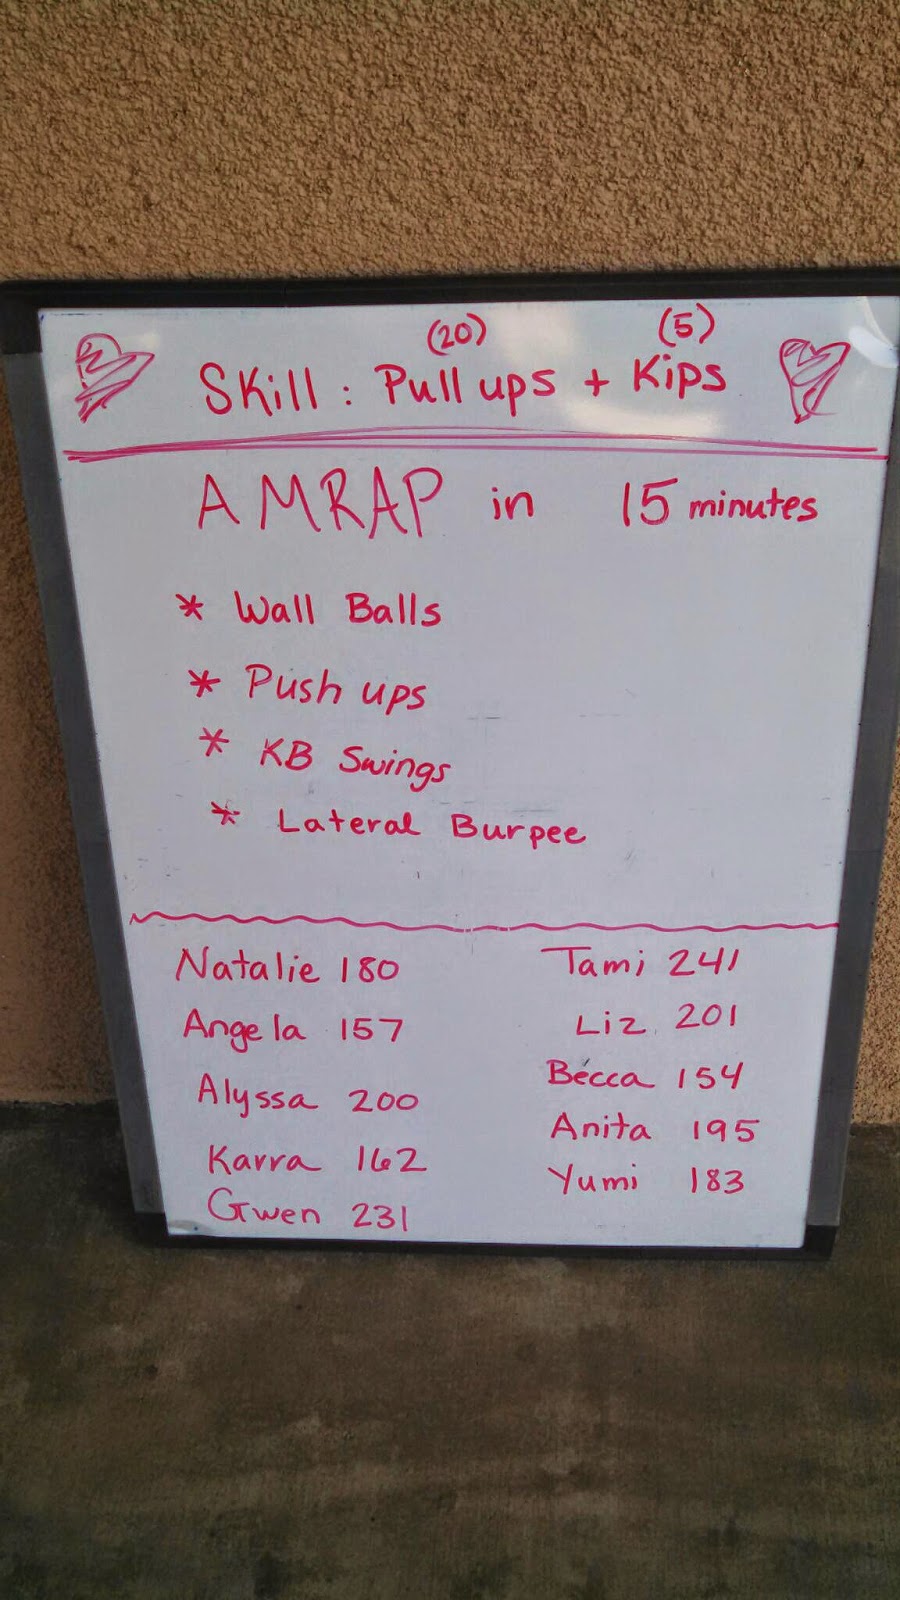 (20) (5)
Skill : Pull ups + Kips
AMRAP in 15 minutes
* Wall Balls
* Push ups
* KB Swings
* Lateral Burpee
Natalie 180
Angela 157
Alyssa 200
Karra 162
Gwen 231
Tami 241
Liz 201
Becca 154
Anita 195
Yumi 183